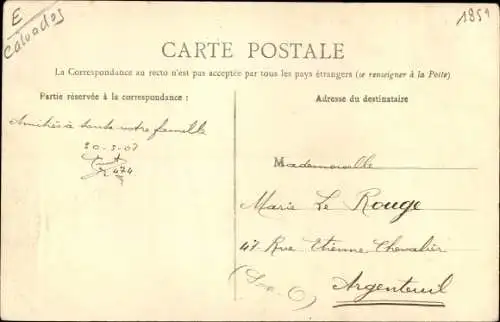 E
Calvados
1859
CARTE POSTALE
La Correspondance au recto n'est pas acceptée par tous les pays étrangers (se renseigner à la Poste)
Partie réservée à la correspondance :
Adresse du destinataire
Amitiés à toute votre famille
20-5-07
474
Mademoiselle
Marie Le Rouge
47 Rue Etienne Chevalier
(Sne-O)
Argenteuil